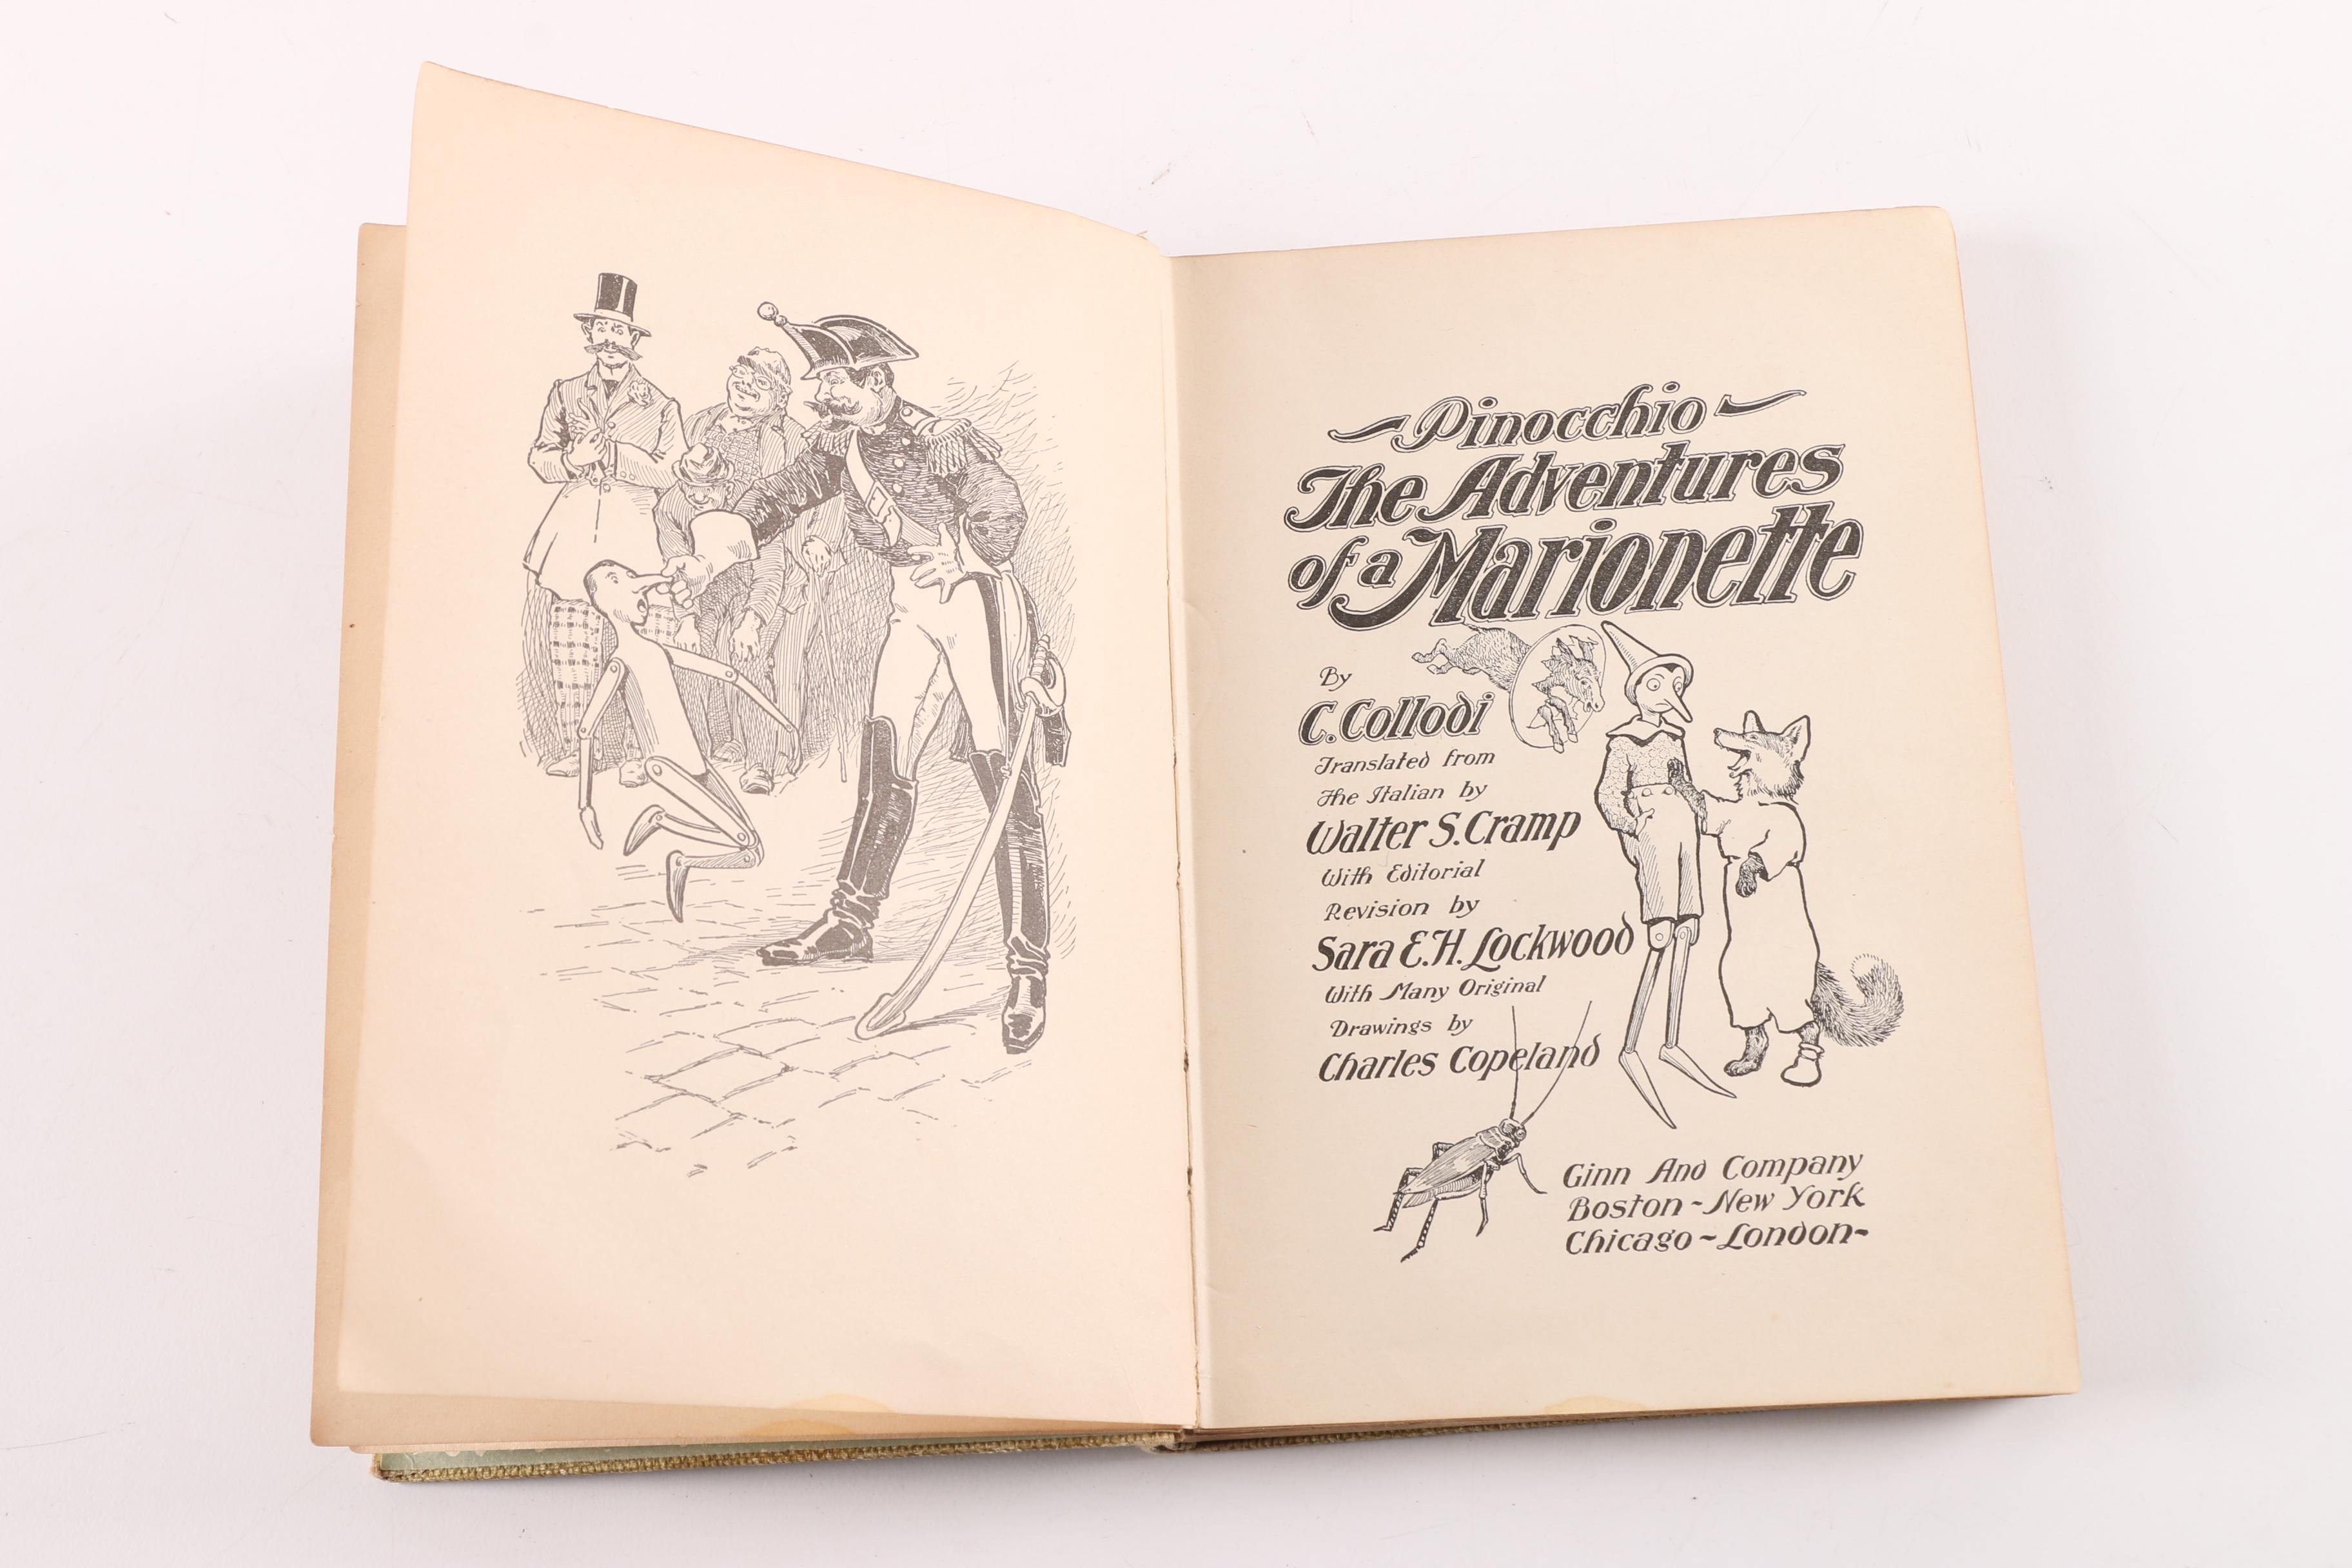 Pinocchio
The Adventures
of a Marionette
By
C. Collodi
Translated from
The Italian by
Walter S. Cramp
With Editorial
Revision by
Sara E. H. Lockwood
With Many Original
Drawings by
Charles Copeland
Ginn And Company
Boston - New York
Chicago - London -